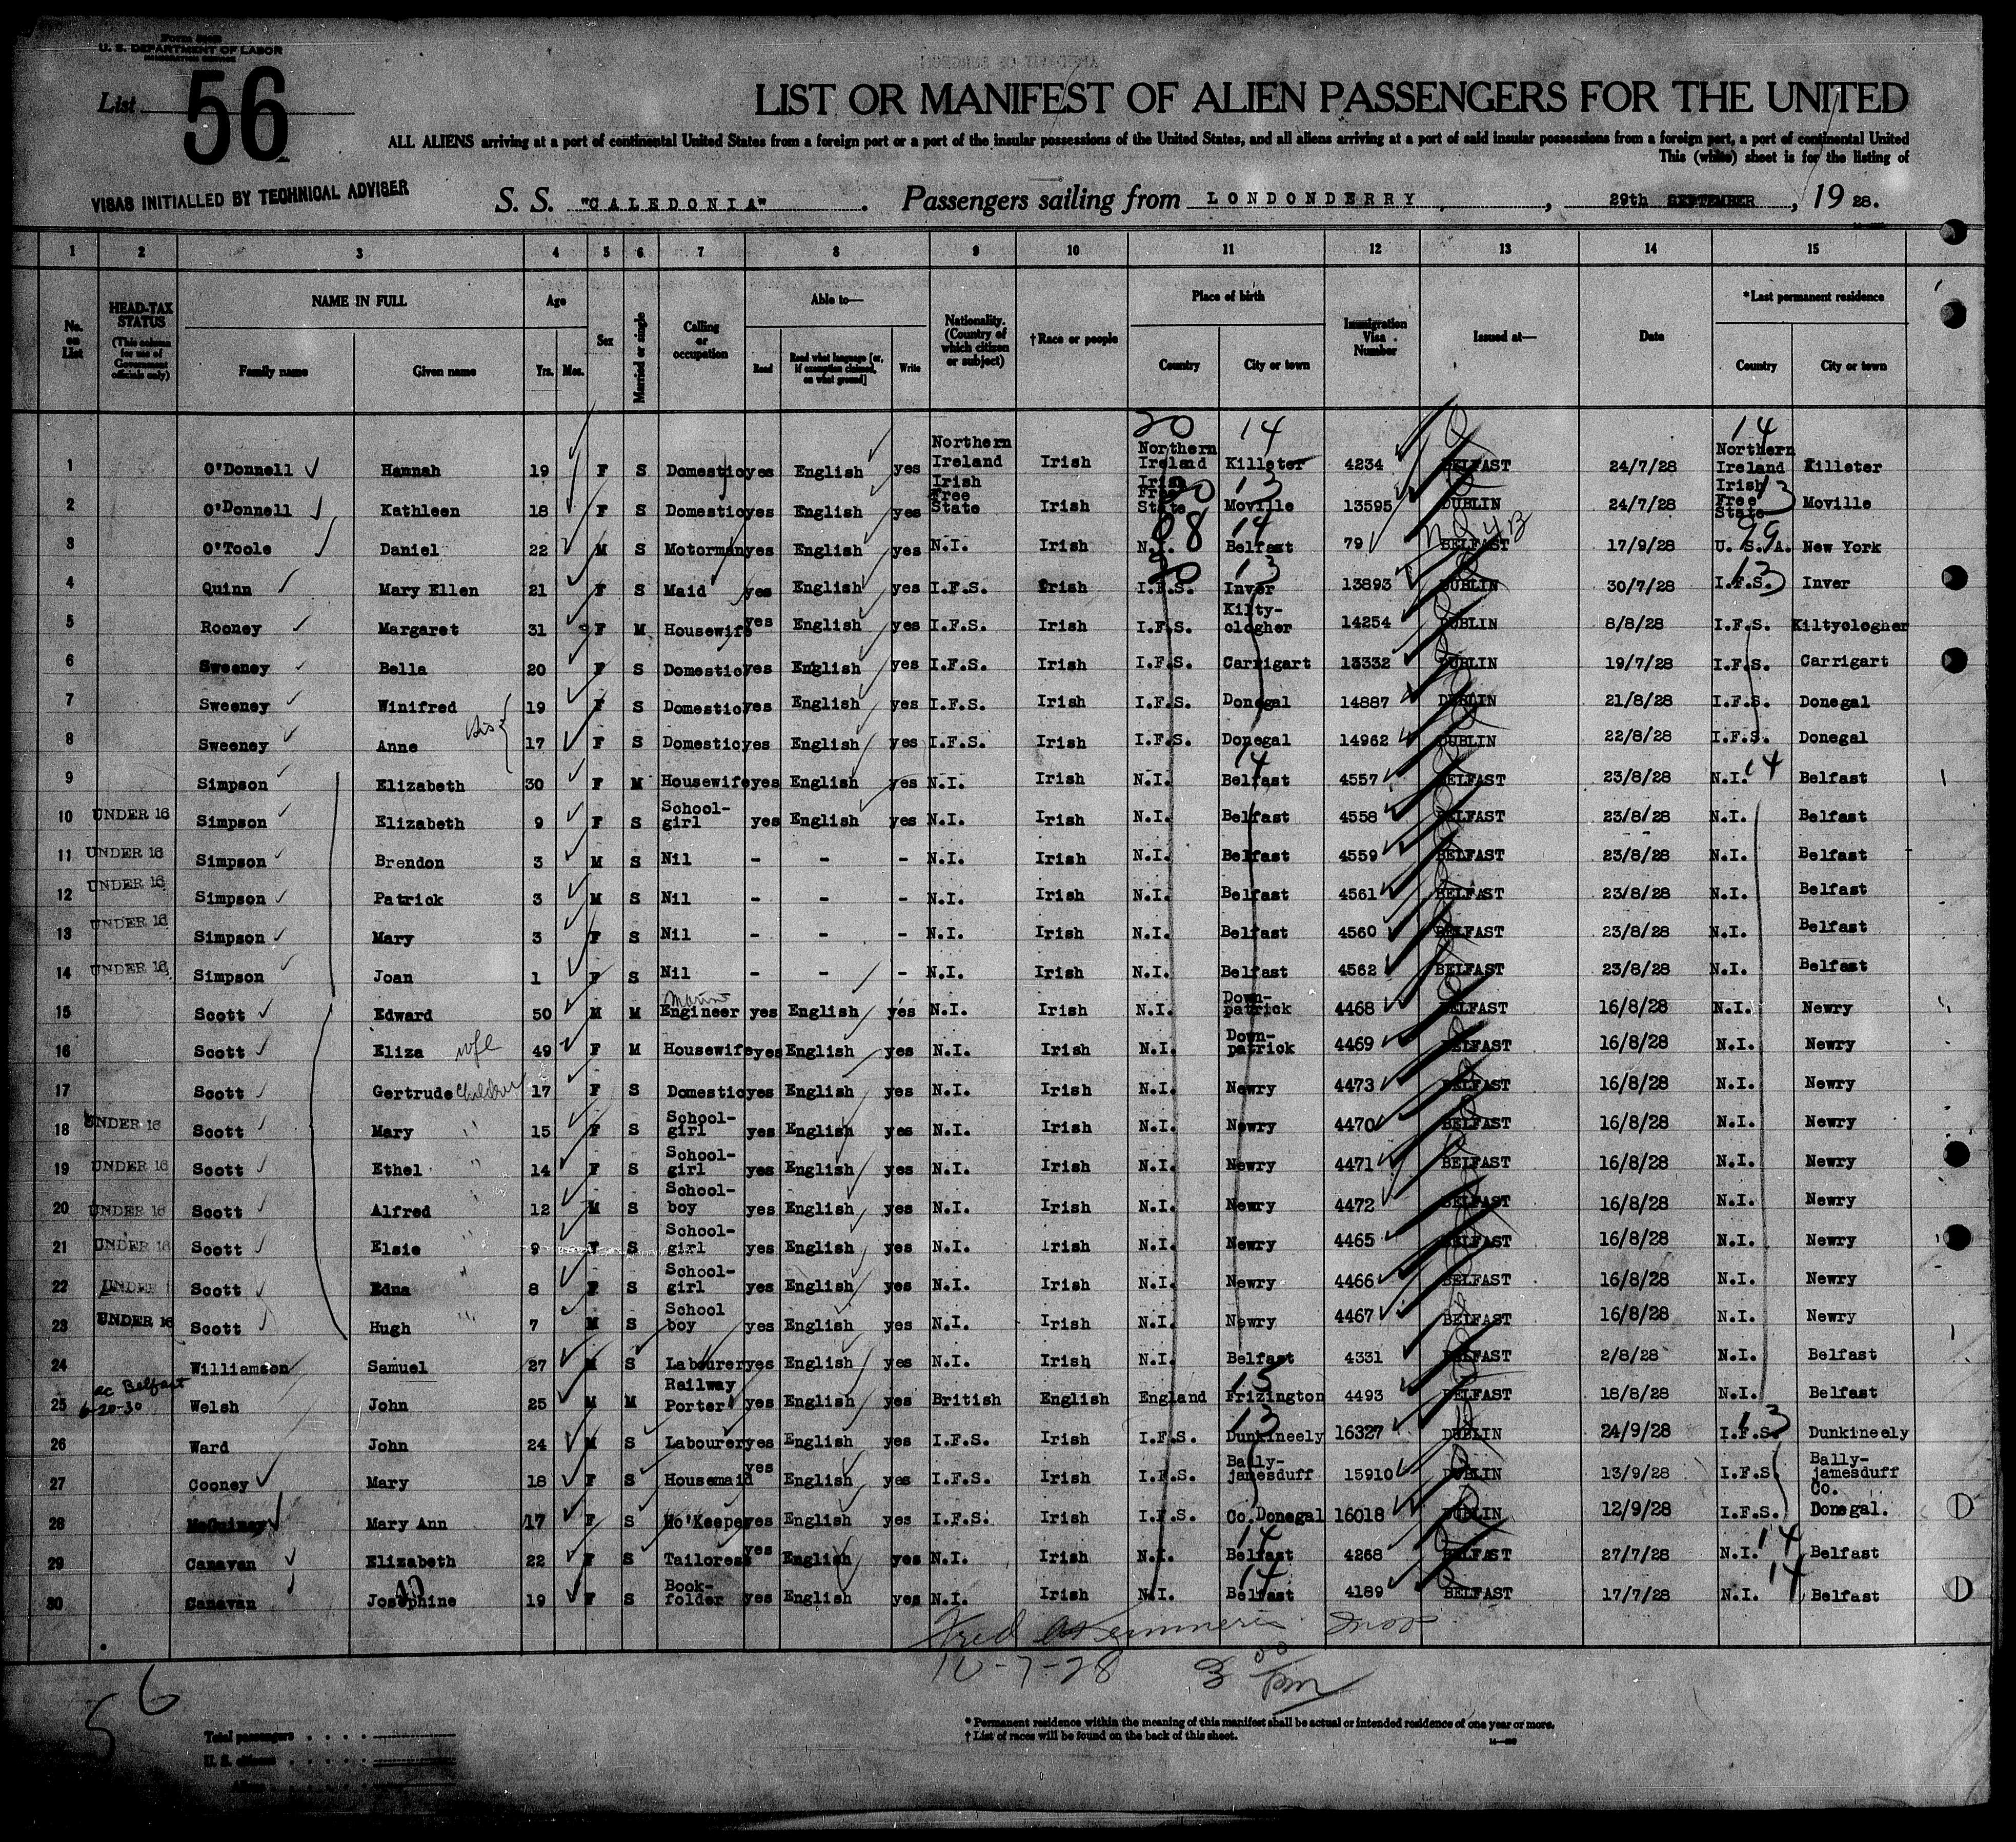 U. S. DEPARTMENT OF LABOR
List 56
LIST OR MANIFEST OF ALIEN PASSENGERS FOR THE UNITED
ALL ALIENS arriving at a port of continental United States from a foreign port or a port of the insular possessions of the United States, and all aliens arriving at a port of said insular possessions from a foreign port, a port of continental United
This (white) sheet is for the listing of
VISAS INITIALLED BY TECHNICAL ADVISER
S. S. "CALEDONIA". Passengers sailing from LONDONDERRY, 29th SEPTEMBER, 1928.
1 2 3 4 5 6 7 8 9 10 11 12 13 14 15
No. on List
HEAD-TAX STATUS (This column for use of Government officials only)
NAME IN FULL Family name Given name
Age Yrs. Mos.
Sex
Married or single
Calling or occupation
Able to— Read Read what language [or, if exemption claimed, on what ground] Write
Nationality. (Country of which citizen or subject)
†Race or people
Place of birth Country City or town
Immigration Visa Number
Issued at—
Date
*Last permanent residence Country City or town
20 14 14
1 O'Donnell Hannah 19 F S Domestic yes English yes Northern Ireland Irish Northern Ireland Killeter 4234 BELFAST 24/7/28 Northern Ireland Killeter
20 13 13
2 O'Donnell Kathleen 18 F S Domestic yes English yes Irish Free State Irish Irish Free State Moville 13595 DUBLIN 24/7/28 Irish Free State Moville
08 14 99
3 O'Toole Daniel 22 M S Motorman yes English yes N.I. Irish N.I. Belfast 79 BELFAST 17/9/28 U. S. A. New York
20 13 13
4 Quinn Mary Ellen 21 F S Maid yes English yes I.F.S. Irish I.F.S. Inver 13893 DUBLIN 30/7/28 I.F.S. Inver
5 Rooney Margaret 31 F M Housewife yes English yes I.F.S. Irish I.F.S. Kilty-clogher 14254 DUBLIN 8/8/28 I.F.S. Kiltyclogher
6 Sweeney Bella 20 F S Domestic yes English yes I.F.S. Irish I.F.S. Carrigart 13332 DUBLIN 19/7/28 I.F.S. Carrigart
7 Sweeney Winifred 19 F S Domestic yes English yes I.F.S. Irish I.F.S. Donegal 14887 DUBLIN 21/8/28 I.F.S. Donegal
sis
8 Sweeney Anne 17 F S Domestic yes English yes I.F.S. Irish I.F.S. Donegal 14962 DUBLIN 22/8/28 I.F.S. Donegal
14 14
9 Simpson Elizabeth 30 F M Housewife yes English yes N.I. Irish N.I. Belfast 4557 BELFAST 23/8/28 N.I. Belfast
10 UNDER 16 Simpson Elizabeth 9 F S School-girl yes English yes N.I. Irish N.I. Belfast 4558 BELFAST 23/8/28 N.I. Belfast
11 UNDER 16 Simpson Brendon 3 M S Nil - - - N.I. Irish N.I. Belfast 4559 BELFAST 23/8/28 N.I. Belfast
12 UNDER 16 Simpson Patrick 3 M S Nil - - - N.I. Irish N.I. Belfast 4561 BELFAST 23/8/28 N.I. Belfast
13 UNDER 16 Simpson Mary 3 F S Nil - - - N.I. Irish N.I. Belfast 4560 BELFAST 23/8/28 N.I. Belfast
14 UNDER 16 Simpson Joan 1 F S Nil - - - N.I. Irish N.I. Belfast 4562 BELFAST 23/8/28 N.I. Belfast
15 Scott Edward 50 M M Engineer yes English yes N.I. Irish N.I. Down-patrick 4468 BELFAST 16/8/28 N.I. Newry
16 Scott Eliza wife 49 F M Housewife yes English yes N.I. Irish N.I. Down-patrick 4469 BELFAST 16/8/28 N.I. Newry
17 Scott Gertrude Children 17 F S Domestic yes English yes N.I. Irish N.I. Newry 4473 BELFAST 16/8/28 N.I. Newry
18 UNDER 16 Scott Mary " 15 F S School-girl yes English yes N.I. Irish N.I. Newry 4470 BELFAST 16/8/28 N.I. Newry
19 UNDER 16 Scott Ethel " 14 F S School-girl yes English yes N.I. Irish N.I. Newry 4471 BELFAST 16/8/28 N.I. Newry
20 UNDER 16 Scott Alfred " 12 M S School-boy yes English yes N.I. Irish N.I. Newry 4472 BELFAST 16/8/28 N.I. Newry
21 UNDER 16 Scott Elsie " 9 F S School-girl yes English yes N.I. Irish N.I. Newry 4465 BELFAST 16/8/28 N.I. Newry
22 UNDER 1 Scott Edna " 8 F S School-girl yes English yes N.I. Irish N.I. Newry 4466 BELFAST 16/8/28 N.I. Newry
23 UNDER 16 Scott Hugh " 7 M S School boy yes English yes N.I. Irish N.I. Newry 4467 BELFAST 16/8/28 N.I. Newry
24 Williamson Samuel 27 M S Labourer yes English yes N.I. Irish N.I. Belfast 4331 BELFAST 2/8/28 N.I. Belfast
ac Belfast 15
25 6-20-30 Welsh John 25 M M Railway Porter yes English yes British English England Frizington 4493 BELFAST 18/8/28 N.I. Belfast
13 13
26 Ward John 24 M S Labourer yes English yes I.F.S. Irish I.F.S. Dunkineely 16327 DUBLIN 24/9/28 I.F.S. Dunkineely
27 Cooney Mary 18 F S Housemaid yes English yes I.F.S. Irish I.F.S. Bally-jamesduff 15910 DUBLIN 13/9/28 I.F.S. Bally-jamesduff
28 McGuiney Mary Ann 17 F S Ho'Keeper yes English yes I.F.S. Irish I.F.S. Co.Donegal 16018 DUBLIN 12/9/28 I.F.S. Co. Donegal.
14 14
29 Canavan Elizabeth 22 F S Tailoress yes English yes N.I. Irish N.I. Belfast 4268 BELFAST 27/7/28 N.I. Belfast
14 14
30 Canavan Josephine 19 F S Book-folder yes English yes N.I. Irish N.I. Belfast 4189 BELFAST 17/7/28 N.I. Belfast
Fred
10-7-28 3 00 pm
56
* Permanent residence within the meaning of this manifest shall be actual or intended residence of one year or more.
† List of races will be found on the back of this sheet.
Total passengers
U. S. citizens